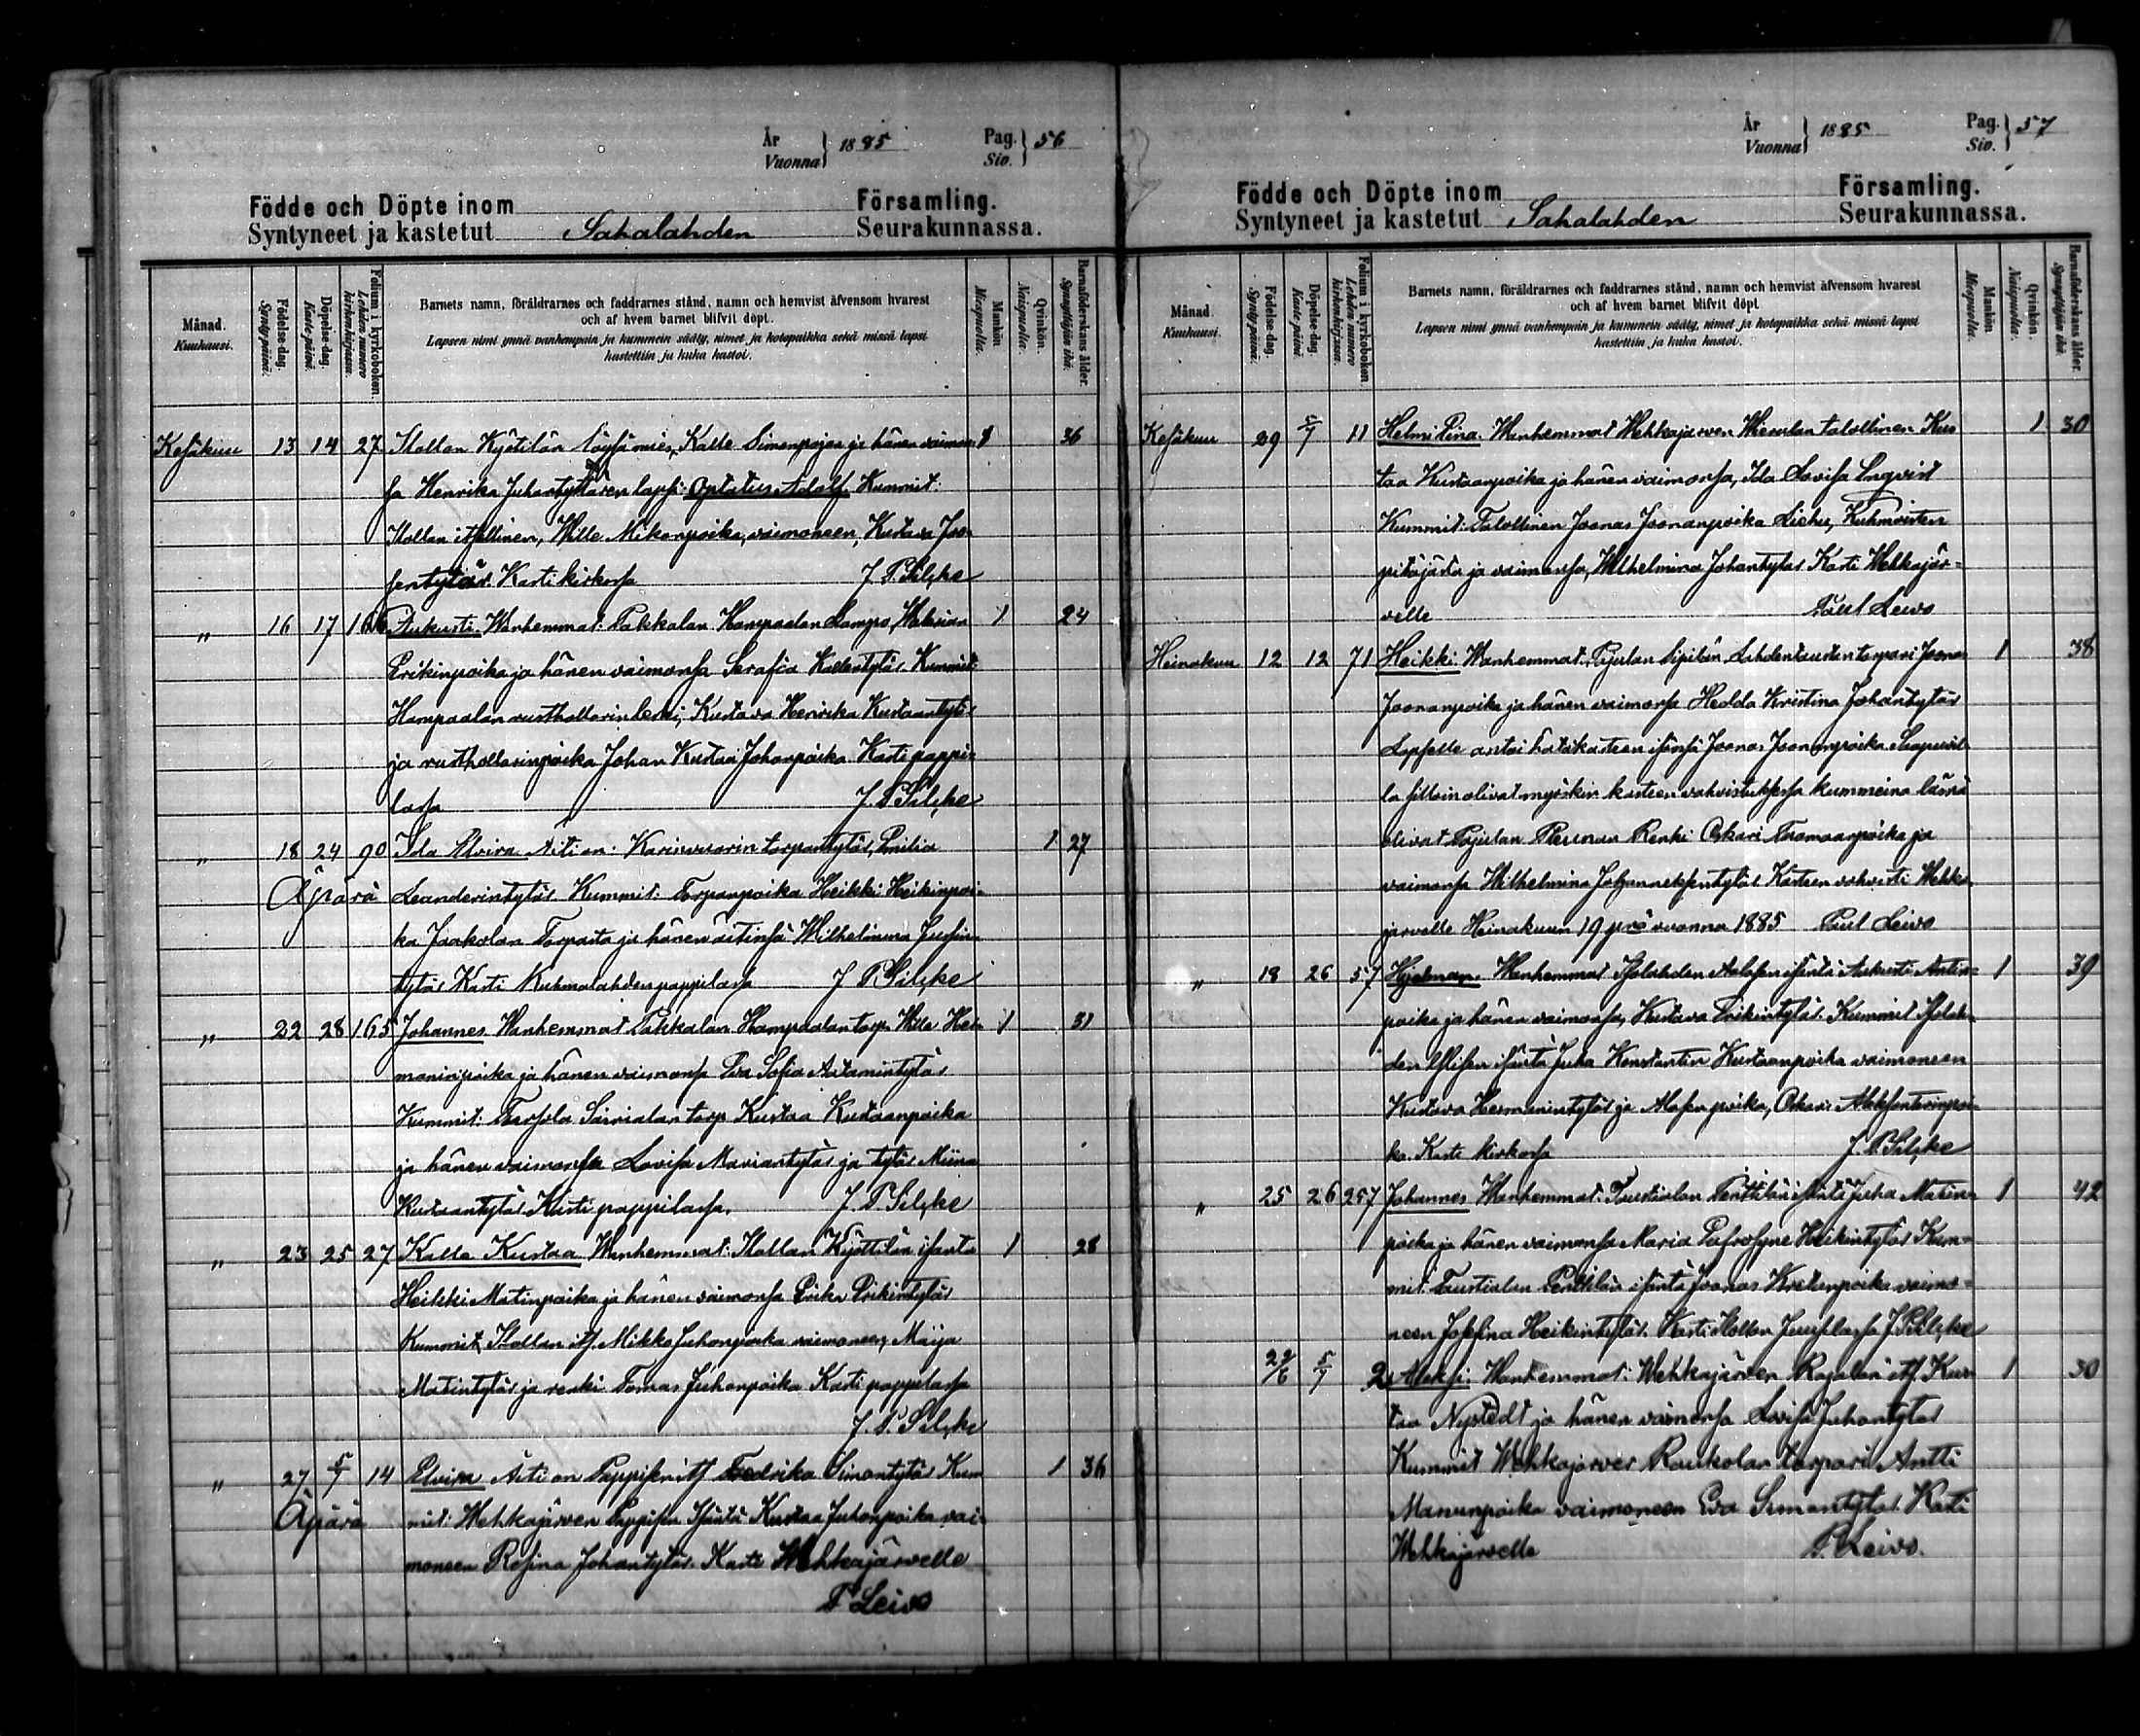 År
Vuonna } 1885 Pag.
Siv. } 56
Födde och Döpte inom Församling.
Syntyneet ja kastetut Sahalahden Seurakunnassa.
Månad.
Kuukausi.
Födelse-dag.
Syntypäivä.
Döpelse-dag.
Kaste päivä
Folium i kyrkoboken.
Lehden numero
kirkonkirjassa.
Barnets namn, föräldrarnes och faddrarnes stånd, namn och hemvist äfvensom hvarest
och af hvem barnet blifvit döpt.
Lapsen nimi ynnä vanhempain ja kummein sääty, nimet ja kotopaikka sekä missä lapsi
kastettiin ja kuka kastoi.
Mankön.
Miespuolta.
Qvinkön.
Naispuolta.
Barnaföderskans ålder.
Synnyttäjän ikä.
Kesäkuu 13 14 27 Kyötilän Kalle Simonpojan ja hänen vaimon- 1 36
sa Henrika Juhantyttären lapsi: Optatus Adolf. Kummit:
itsellinen, Wille Mikonpoika, vaimoneen, Kustava Joo-
sentytär. Kasti kirkossa J. P. Silske
" 16 17 Aukusti. Wanhemmat: Pakkalan Hampaalan 1 24
Erikinpoika ja hänen vaimonsa Serafia Kallentytär. Kummit:
Hampaalan rusthollarin leski, Kustava Henrika Kustaantytär
ja rusthollarinpoika Johan Kustaa Johanpoika. Kasti pappi-
lassa J. P. Silske
" 18 24 90 Ida Elvira Äiti on: Karinvuorin torpantytär, Emilia 1 27
Äpärä Leanderintytär. Kummit: Torpanpoika Heikki Heikinpoi-
ka Jaakolan Torpasta ja hänen äitinsä Wilhelmina
tytär Kasti Kuhmalahden pappilassa J. P. Silske
" 22 28 165 Johannes Wanhemmat Pakkalan Hampaalan torp. Wille Her- 1 31
maninpoika ja hänen vaimonsa Eva Sofia Aatamintytär
Kummit: torp. Kustaa Kustaanpoika
ja hänen vaimonsa Lovisa Mariantytär ja tytär Miina
Kustaantytär Kasti pappilassa. J. P. Silske
" 23 25 27 Kalle Kustaa Wanhemmat: Kyöttilän isäntä 1 28
Heikki Matinpoika ja hänen vaimonsa Erika Erikintytär
Kummit, its. Mikko Juhonpoika vaimoneen, Maija
Matintytär ja renki Tomas Juhonpoika Kasti pappilassa
J. P. Silske
" 27 5/7 14 Elvira Äiti on Pappisen its Fredrika Simontytär Kum 1 36
Äpärä mit: Wehkajärven Pappisen Isäntä Kustaa Juhonpoika vai-
moneen Rosina Johantytär. Kasti Wehkajärvelle
P Leivo
År
Vuonna } 1885 Pag.
Siv. } 57
Födde och Döpte inom Församling.
Syntyneet ja kastetut Sahalahden Seurakunnassa.
Månad.
Kuukausi.
Födelse-dag.
Syntypäivä.
Döpelse-dag.
Kaste päivä
Folium i kyrkoboken.
Lehden numero
kirkonkirjassa.
Barnets namn, föräldrarnes och faddrarnes stånd, namn och hemvist äfvensom hvarest
och af hvem barnet blifvit döpt.
Lapsen nimi ynnä vanhempain ja kummein sääty, nimet ja kotopaikka sekä missä lapsi
kastettiin ja kuka kastoi.
Mankön.
Miespuolta.
Qvinkön.
Naispuolta.
Barnaföderskans ålder.
Synnyttäjän ikä.
Kesäkuu 29 5/7 11 Helmi Wanhemmat Wehkajärven talollinen Kus 1 30
taa Kustaanpoika ja hänen vaimonsa, Ida Lovisa Enqvist
Kummit: Talollinen Joonas Joonanpoika Kuhmoisten
pitäjästä ja vaimonsa, Wilhelmina Johantytär Kasti Wehkajär-
velle Paul Leivo
Heinäkuu 12 12 71 Heikki: Wanhemmat, Pajulan torpari Joonas 1 38
Joonanpoika ja hänen vaimonsa Hedda Kristina Johantytär
Lapselle antoi hätäkasteen isänsä Joonas Joonanpoika
la silloin olivat myöskin kasteen vahvistuksessa kummeina läsnä
olivat Pajulan Renki Oskari Tuomaanpoika ja
vaimonsa Wilhelmina Johanneksentytär Kasteen vahvisti Wehka-
järvelle Heinäkuun 19 p:vä vuonna 1885 Paul Leivo
" 18 26 57 Hjelmar. Wanhemmat isäntä Aukusti Antin- 1 39
poika ja hänen vaimonsa, Kustava Erikintytär. Kummit
den isäntä Juha Konstantin Kustaanpoika vaimoneen
Kustava Hermanintytär ja poika, Oskari Aleksanterinpoi-
ka. Kasti kirkossa J. P. Silske
" 25 26 257 Johannes Wanhemmat: Tuustialan Penttilän isäntä Juha Matin- 1 42
poika ja hänen vaimonsa Maria Eufrosyne Heikintytär Kum-
mit: Tuustialan Penttilän isäntä Joonas vaimo-
neen Josefina Heikintytär. Kasti J. P. Silske
29/6 5/7 2 Aleksi: Wanhemmat: Wehkajärven Rajalan its. Kus 1 30
taa Nystedt ja hänen vaimonsa Lovisa Juhantytär
Kummit Wehkajärven Raukolan torpari Antti
Manunpoika vaimoneen Eva Simontytär Kasti
Wehkajärvelle P. Leivo.